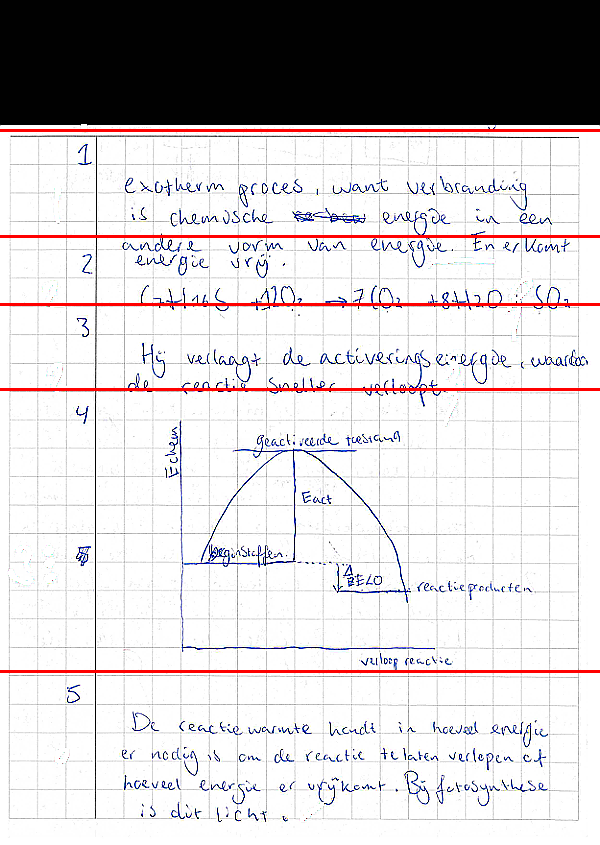 1
exotherm proces, want verbranding
is chemische energie in een
andere vorm van energie. En er komt
2
energie vrij.
C7H16S + 12O2 → 7CO2 + 8H2O + SO2
3
Hij verlaagt de activeringsenergie, waardoor
de reactie sneller verloopt
4
geactiveerde toestand
Echem
Eact
beginstoffen.
ΔE<0
reactieproducten
verloop reactie
5
De reactiewarmte houdt in hoeveel energie
er nodig is om de reactie te laten verlopen of
hoeveel energie er vrijkomt. Bij fotosynthese
is dit licht.